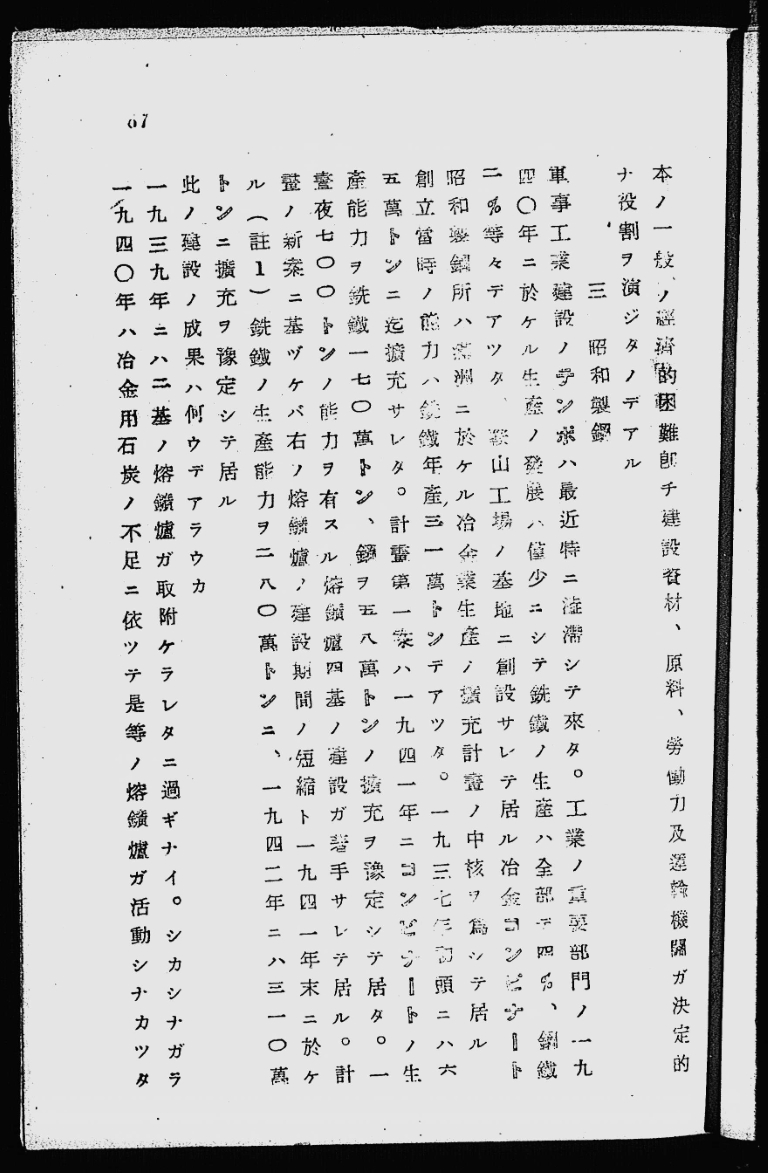 67
本ノ一般ノ經濟的困難卽チ建設資材、原料、勞働力及運輸機關ガ決定的
ナ役割ヲ演ジタノデアル
三 昭和製鋼
軍事工業建設ノテンポハ最近特ニ澁滯シテ來タ。工業ノ重要部門ノ一九
四〇年ニ於ケル生產ノ發展ハ僅少ニシテ銑鐵ノ生產ハ全部デ四%、鋼鐵
二%等々デアツタ、鞍山工場ノ基地ニ創設サレテ居ル冶金コンビナート
昭和製鋼所ハ滿洲ニ於ケル冶金業生產ノ擴充計畫ノ中核ヲ爲シテ居ル
創立當時ノ能力ハ銑鐵年產三一萬トンデアツタ。一九三七年初頭ニハ六
五萬トンニ迄擴充サレタ。計畫第一案ハ一九四一年ニコンビナートノ生
產能力ヲ銑鐵一七〇萬トン、鋼ヲ五八萬トンノ擴充ヲ豫定シテ居タ。一
晝夜七〇〇トンノ能力ヲ有スル熔鑛爐四基ノ建設ガ著手サレテ居ル。計
畫ノ新案ニ基ヅケバ右ノ熔鑛爐ノ建設期間ノ短縮ト一九四一年末ニ於ケ
ル(註1)銑鐵ノ生產能力ヲ二八〇萬トンニ、一九四二年ニハ三一〇萬
トンニ擴充ヲ豫定シテ居ル
此ノ建設ノ成果ハ何ウデアラウカ
一九三九年ニハ二基ノ熔鑛爐ガ取附ケラレタニ過ギナイ。シカシナガラ
一九四〇年ハ冶金用石炭ノ不足ニ依ツテ是等ノ熔鑛爐ガ活動シナカツタ